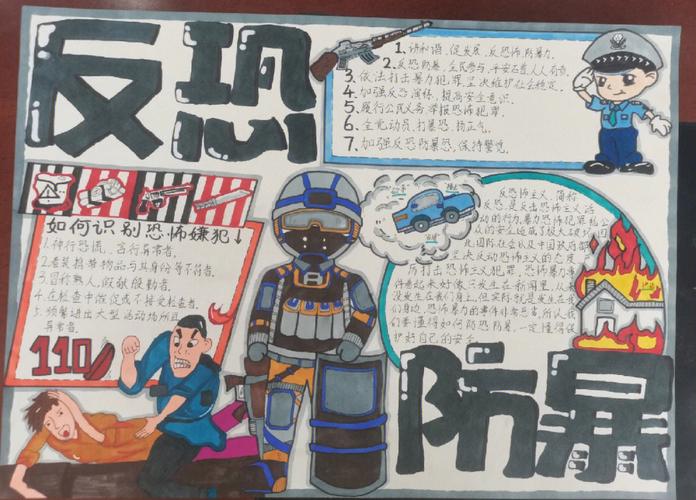 反恐
1、讲和谐、促发展、反恐怖防暴力.
2、反恐防暴、全民参与,平安石盘人人有责.
3、依法打击暴力犯罪坚决维护社会稳定.
4、加强反恐演练,提高安全意识.
5、履行公民义务,举报恐怖犯罪.
6、全党动员,打暴恐,扬正气.
7、加强反恐防暴恐,保持警觉.
如何识别恐怖嫌犯↓
1.神行恐慌、言行异常者.
2.着装携带物品与其身份等不符者.
3.冒称熟人,假献殷勤者.
4.在检查中催促或不接受检查者.
5.频繁进出大型活动场所且
异常者.
110
反恐怖主义,简称
反恐,是反击恐怖主义活
动的行为.暴力恐怖犯罪
坚决反动恐怖主义的态度
厉打击恐怖主义犯罪,恐怖暴力事
件看起来好像只发生在新闻里,从来
没发生在我们身上,但实际就是发生在我
们身边,恐怖暴力的事件时常危害,所以我
们要懂得如何防恐防暴,一定懂得保
护好自己的安全
防暴